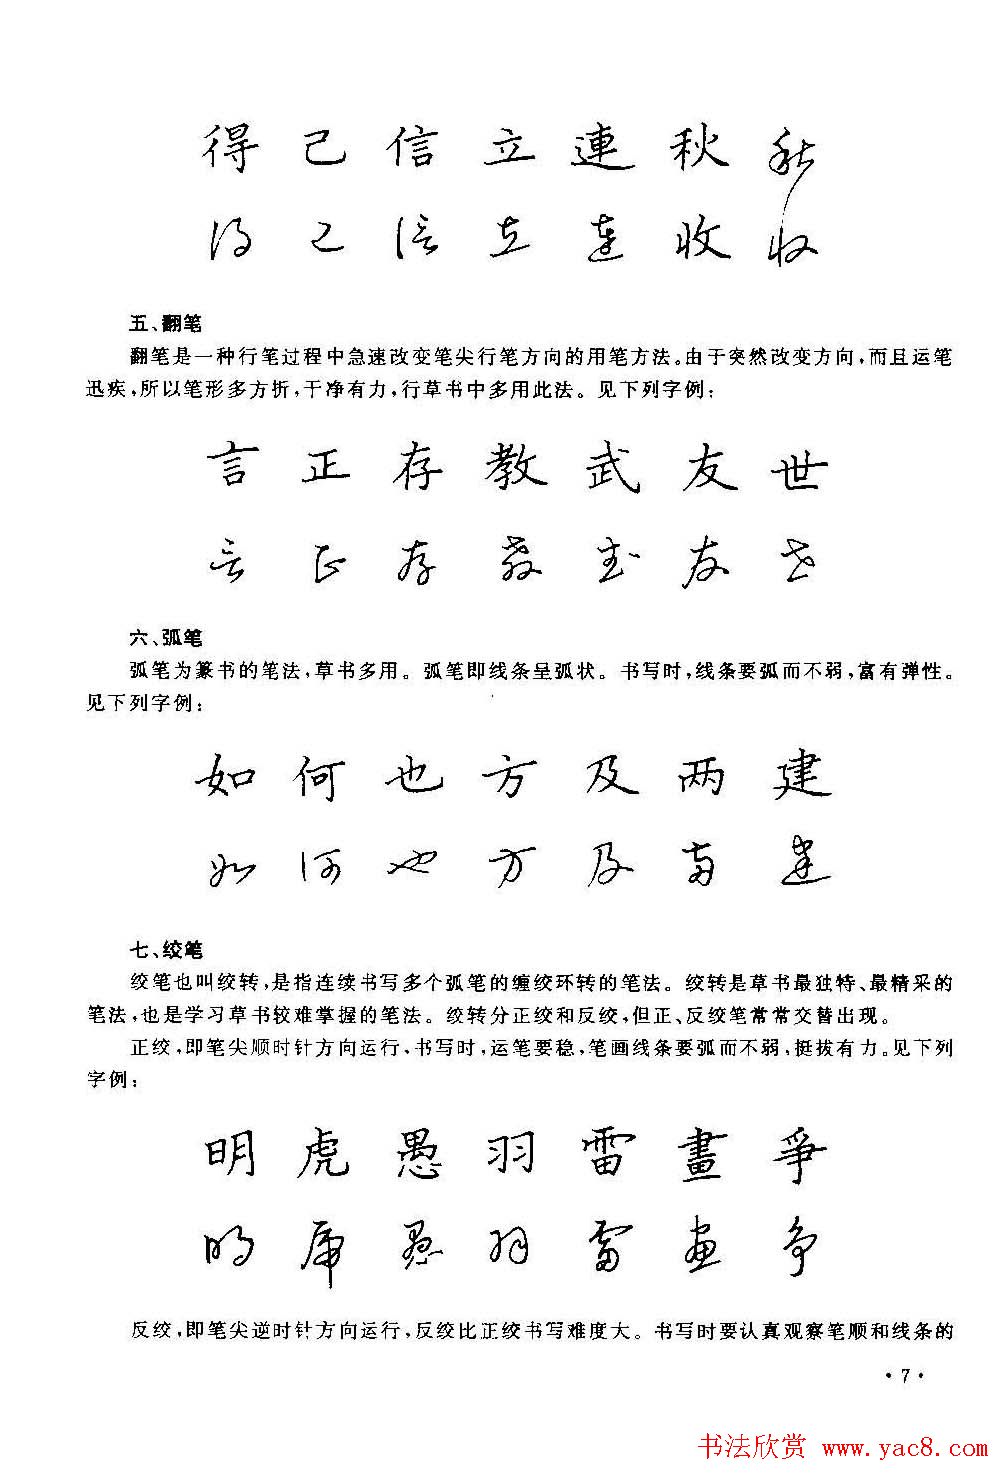 得 己 信 立 連 秋 秋
得 己 信 立 連 收 收
五、翻笔
翻笔是一种行笔过程中急速改变笔尖行笔方向的用笔方法。由于突然改变方向，而且运笔
迅疾，所以笔形多方折，干净有力，行草书中多用此法。见下列字例：
言 正 存 教 武 友 世
言 正 存 教 武 友 世
六、弧笔
弧笔为篆书的笔法，草书多用。弧笔即线条呈弧状。书写时，线条要弧而不弱，富有弹性。
见下列字例：
如 何 也 方 及 两 建
如 何 也 方 及 两 建
七、绞笔
绞笔也叫绞转，是指连续书写多个弧笔的缠绞环转的笔法。绞转是草书最独特、最精采的
笔法，也是学习草书较难掌握的笔法。绞转分正绞和反绞，但正、反绞笔常常交替出现。
正绞，即笔尖顺时针方向运行，书写时，运笔要稳，笔画线条要弧而不弱，挺拔有力。见下列
字例：
明 虎 愚 羽 雷 畫 爭
明 虎 愚 羽 雷 畫 爭
反绞，即笔尖逆时针方向运行，反绞比正绞书写难度大。书写时要认真观察笔顺和线条的
·7·
书法欣赏 www.yac8.com